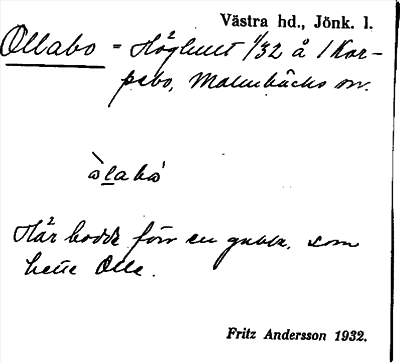 Västra hd., Jönk. l.
Ollabo = Höglunt 1/32 å 1 Kor-
psbo, Malmbäcks sn.
Här bodde förr en gubbe, som
hette Olle.
Fritz Andersson 1932.